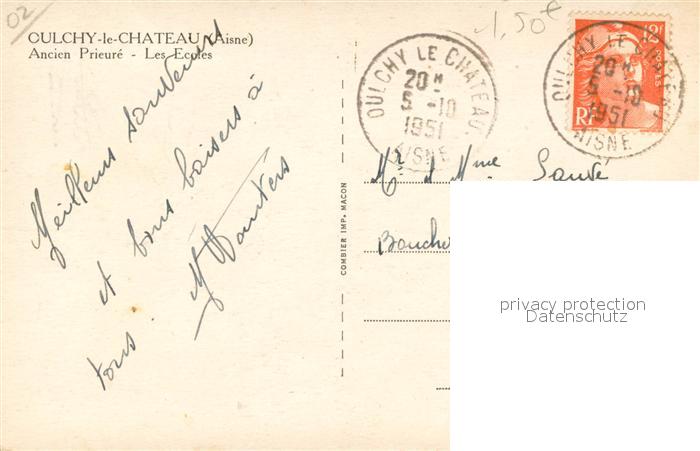 02
1,50€
OULCHY-le-CHATEAU (Aisne)
Ancien Prieuré - Les Ecoles
Meilleurs souvenirs
et bons baisers à
tous.
COMBIER IMP. MACON
OULCHY LE CHATEAU
20 H
5 -10
1951
AISNE
12F
POSTES
RF
OULCHY LE CHATEAU
20 H
5 -10
1951
AISNE
Mr et Mme
privacy protection
Datenschutz